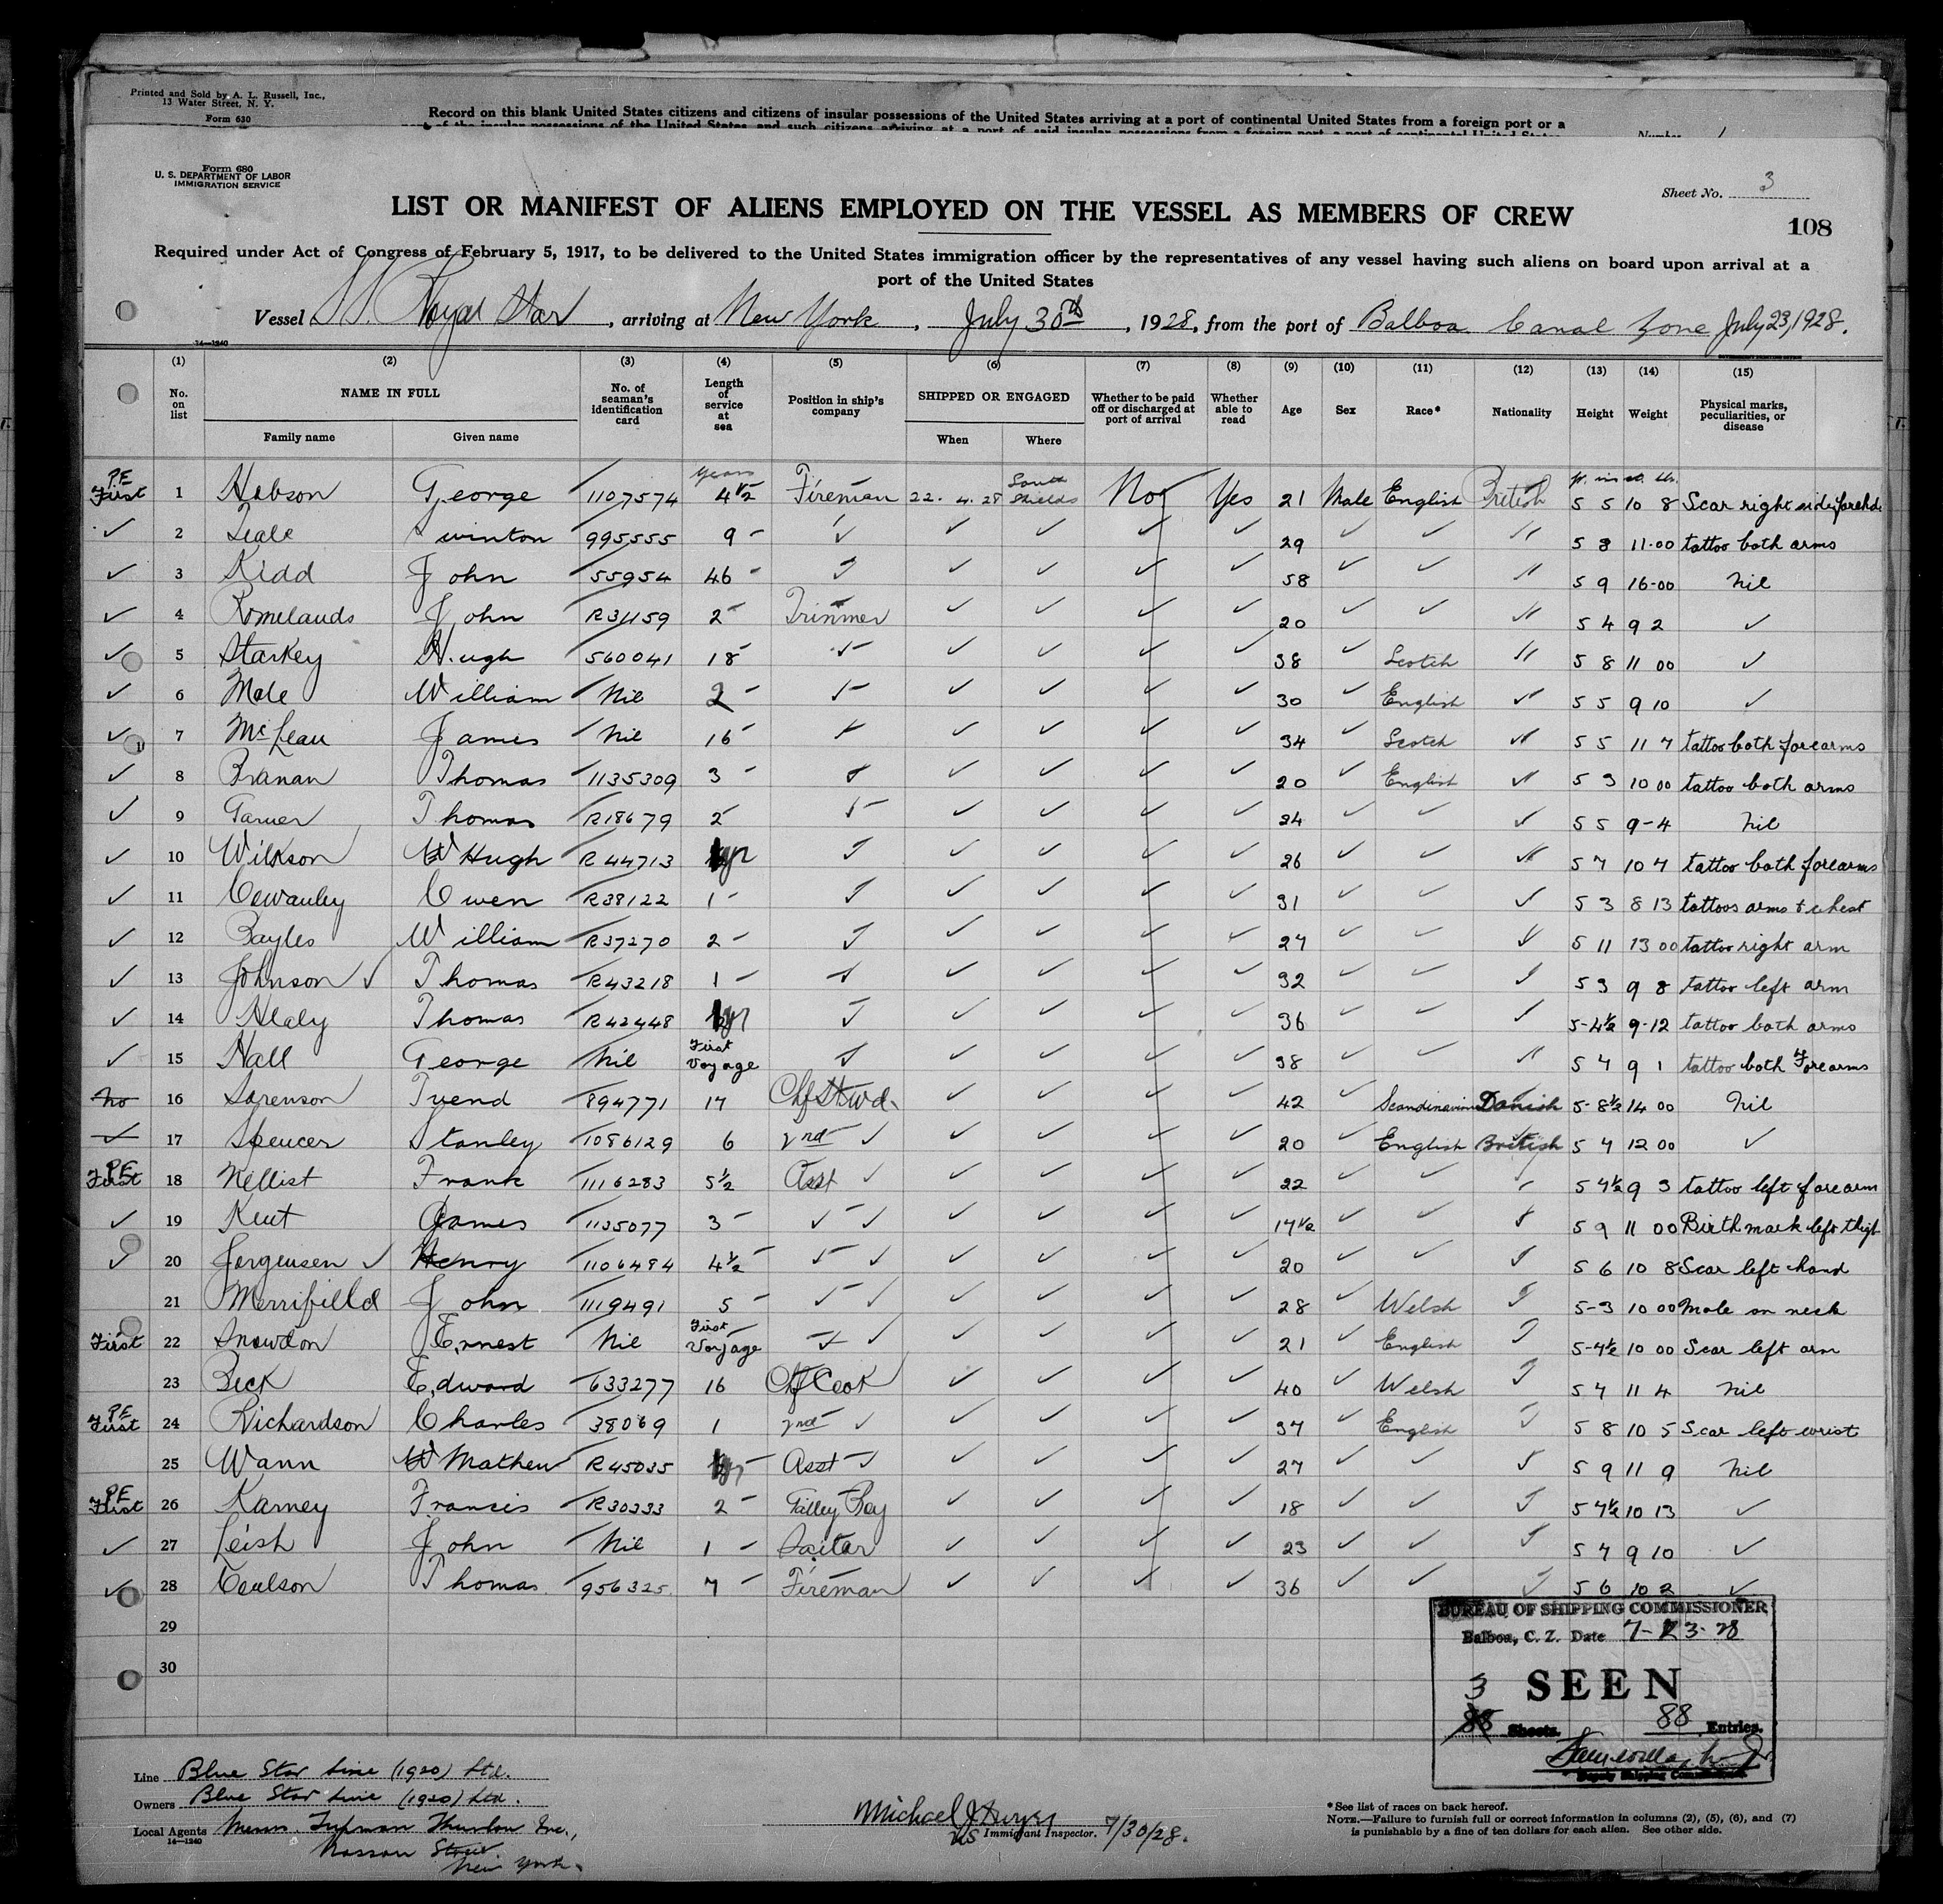 Printed and Sold by A. L. Russell, Inc.,
13 Water Street, N. Y.
Form 630
Record on this blank United States citizens and citizens of insular possessions of the United States arriving at a port of continental United States from a foreign port or a
of the insular possessions of the United States and such citizens arriving at a port of said insular possessions from a foreign port, a port of continental United States
Number 1
Form 680
U. S. DEPARTMENT OF LABOR
IMMIGRATION SERVICE
Sheet No. 3
LIST OR MANIFEST OF ALIENS EMPLOYED ON THE VESSEL AS MEMBERS OF CREW
108
Required under Act of Congress of February 5, 1917, to be delivered to the United States immigration officer by the representatives of any vessel having such aliens on board upon arrival at a
port of the United States
Vessel S.S. Royal Star, arriving at New York, July 30th, 1928, from the port of Balboa Canal Zone July 23, 1928.
14—1240
(1) (2) (3) (4) (5) (6) (7) (8) (9) (10) (11) (12) (13) (14) (15)
No. on list NAME IN FULL No. of seaman's identification card Length of service at sea Position in ship's company SHIPPED OR ENGAGED Whether to be paid off or discharged at port of arrival Whether able to read Age Sex Race* Nationality Height Weight Physical marks, peculiarities, or disease
Family name Given name When Where
years ft. ins st. lbs.
PE First 1 Hobson George 1107574 4 1/2 Fireman 22. 4. 28 South Shields No Yes 21 Male English British 5 5 10 8 Scar right side forehd.
✓ 2 Swinton 995555 9 - ✓ ✓ ✓ ✓ ✓ 29 ✓ ✓ ✓ 5 8 11.00 tattoo both arms
✓ 3 Kidd John 55954 46 - ✓ ✓ ✓ ✓ ✓ 58 ✓ ✓ ✓ 5 9 16-00 Nil
✓ 4 Romelands John 2 - Trimmer ✓ ✓ ✓ ✓ 20 ✓ ✓ ✓ 5 4 9 2 ✓
✓ 5 Starkey Hugh 560041 18 - ✓ ✓ ✓ ✓ ✓ 38 ✓ Scotch ✓ 5 8 11 00 ✓
✓ 6 Mole William Nil 2 - ✓ ✓ ✓ ✓ ✓ 30 ✓ English ✓ 5 5 9 10 ✓
✓ 7 McLean James Nil 16 - ✓ ✓ ✓ ✓ ✓ 34 ✓ Scotch ✓ 5 5 11 7 tattoo both forearms
✓ 8 Branan Thomas 1135309 3 - ✓ ✓ ✓ ✓ ✓ 20 ✓ English ✓ 5 3 10 00 tattoo both arms
✓ 9 Thomas R18679 2 - ✓ ✓ ✓ ✓ ✓ 24 ✓ ✓ ✓ 5 5 9-4 Nil
✓ 10 Wilkson W Hugh R44713 yr ✓ ✓ ✓ ✓ ✓ 26 ✓ ✓ ✓ 5 7 10 7 tattoo both forearms
✓ 11 Owen R38122 1 - ✓ ✓ ✓ ✓ ✓ 31 ✓ ✓ ✓ 5 3 8 13 tattoos arms & chest
✓ 12 Bayles William R37270 2 - ✓ ✓ ✓ ✓ ✓ 27 ✓ ✓ ✓ 5 11 13 00 tattoo right arm
✓ 13 Johnson ✓ Thomas R43218 1 - ✓ ✓ ✓ ✓ ✓ 32 ✓ ✓ ✓ 5 3 9 8 tattoo left arm
✓ 14 Healy Thomas R42448 yr ✓ ✓ ✓ ✓ ✓ 36 ✓ ✓ ✓ 5-4 1/2 9-12 tattoo both arms
✓ 15 Hall George Nil First Voyage ✓ ✓ ✓ ✓ ✓ 38 ✓ ✓ ✓ 5 4 9 1 tattoo both Forearms
No 16 Sorenson 894771 17 Chf Stwd. ✓ ✓ ✓ ✓ 42 ✓ Scandinavian Danish 5-8 1/2 14 00 Nil
✓ 17 Spencer Stanley 1086129 6 2nd ✓ ✓ ✓ ✓ ✓ 20 ✓ English British 5 7 12 00 ✓
PE First 18 Nellist Frank 1116283 5 1/2 Asst ✓ ✓ ✓ ✓ ✓ 22 ✓ ✓ ✓ 5 7 1/2 9 3 tattoo left forearm
✓ 19 Kent James 1135077 3 - ✓ ✓ ✓ ✓ ✓ ✓ 17 1/2 ✓ ✓ ✓ 5 9 11 00 Birth mark left thigh
✓ 20 Jorgensen ✓ Henry 1106494 4 1/2 - ✓ ✓ ✓ ✓ ✓ ✓ 20 ✓ ✓ ✓ 5 6 10 8 Scar left hand
21 Merrifield John 1119491 5 - ✓ ✓ ✓ ✓ ✓ ✓ 28 ✓ Welsh ✓ 5-3 10 00 Mole on neck
First 22 Snowdon Ernest Nil First Voyage ✓ ✓ ✓ ✓ ✓ ✓ 21 ✓ English ✓ 5-7 1/2 10 00 Scar left arm
23 Beck Edward 633277 16 Chf Cook ✓ ✓ ✓ ✓ 40 ✓ Welsh ✓ 5 7 11 4 Nil
PE First 24 Richardson Charles 38069 1 2nd ✓ ✓ ✓ ✓ ✓ 37 ✓ English ✓ 5 8 10 5 Scar left wrist
25 Wann W Mathew R45035 Asst ✓ ✓ ✓ ✓ ✓ 27 ✓ ✓ ✓ 5 9 11 9 Nil
PE First 26 Karney Francis R30333 2 - Galley Boy ✓ ✓ ✓ ✓ 18 ✓ ✓ ✓ 5 7 1/2 10 13 ✓
✓ 27 Leish John Nil 1 - ✓ ✓ ✓ ✓ 23 ✓ ✓ ✓ 5 7 9 10 ✓
✓ 28 Coulson Thomas 956325 7 - Fireman ✓ ✓ ✓ ✓ 36 ✓ ✓ ✓ 5 6 10 2 ✓
29
30
BUREAU OF SHIPPING COMMISSIONER
Balboa, C. Z. Date 7-23-28
SEEN
3
88 Sheets. 88 Entries.
Deputy Shipping Commissioner
Line Blue Star Line (1920) Ltd.
Owners Blue Star Line (1920) Ltd.
Local Agents Messrs. Thurlow Inc.,
14—1240
Nassau Street
New York.
Michael J Dwyer
US Immigrant Inspector. 7/30/28.
*See list of races on back hereof.
NOTE.—Failure to furnish full or correct information in columns (2), (5), (6), and (7)
is punishable by a fine of ten dollars for each alien. See other side.